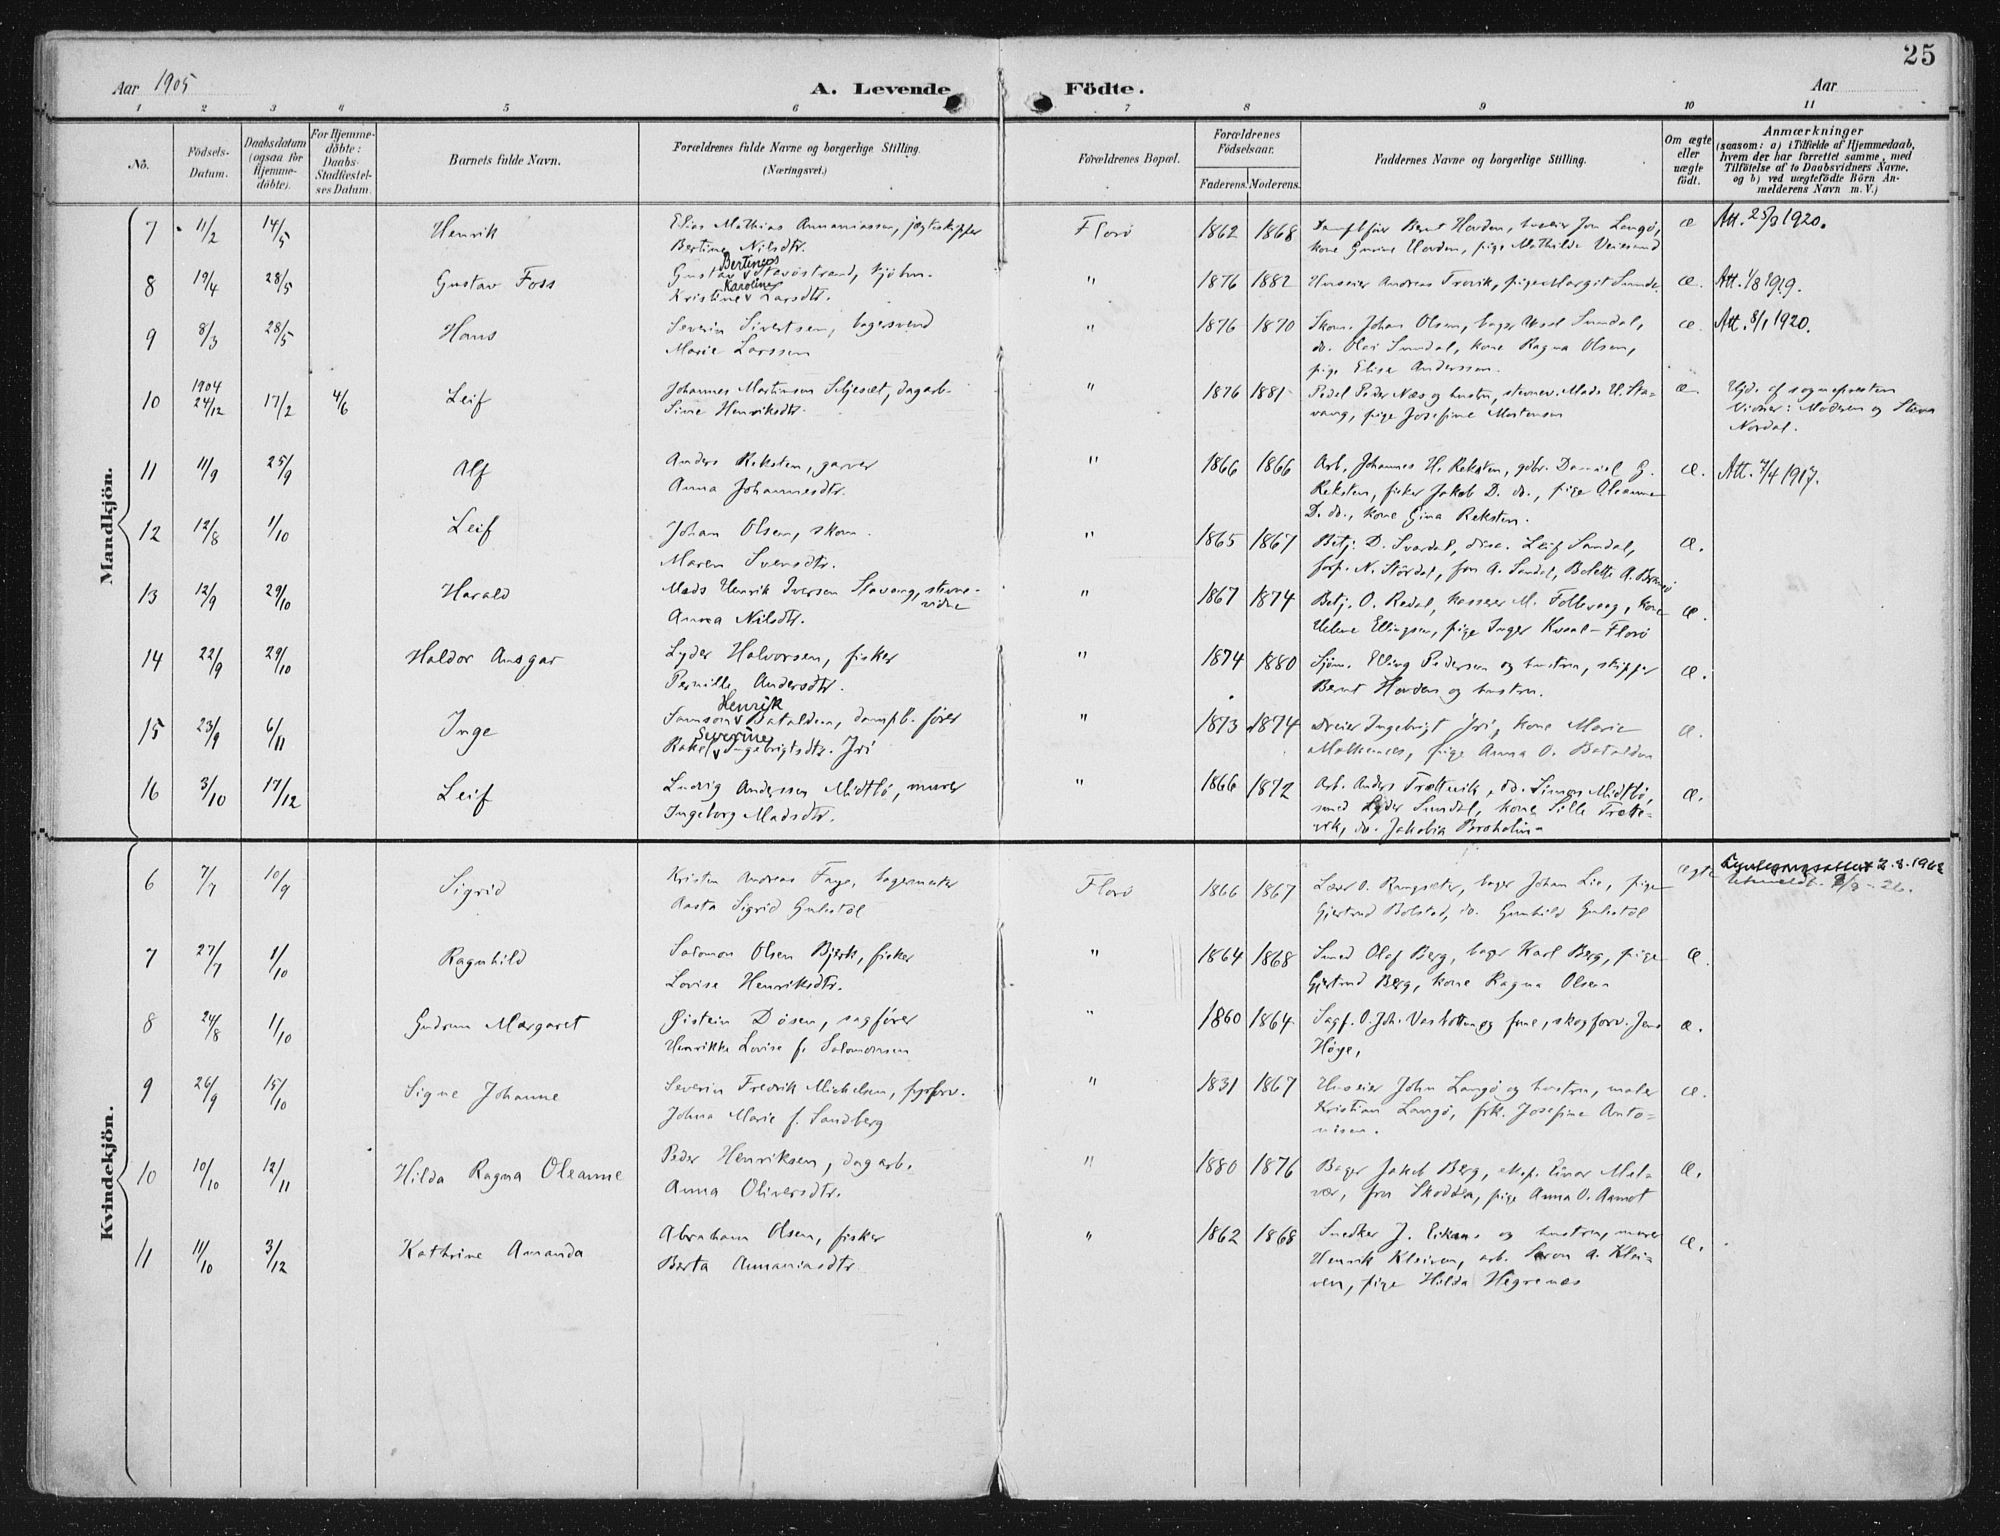 25
Aar 1905
A. Levende Födte.
Aar
1 2 3 4 5 6 7 8 9 10 11
No.
Födsels-Datum.
Daabsdatum (ogsaa for Hjemme-döbte).
For Hjemme-döbte: Daabs-Stadfæstel-ses Datum.
Barnets fulde Navn.
Forældrenes fulde Navne og borgerlige Stilling. (Næringsvei.)
Forældrenes Bopæl.
Forældrenes Födselsaar.
Faderens. Moderens.
Faddernes Navne og borgerlige Stilling.
Om ægte eller uægte födt.
Anmærkninger
(saasom: a) i Tilfælde af Hjemmedaab, hvem der har forrettet samme, med Tilföielse af to Daabsvidners Navne, og b) ved uægtefödte Börn Anmelderens Navn m. V.)
Mandkjön.
7 11/2 14/5 Henrik Elias Mathias Annaniassen, jægtskipper Florö 1862 1868 Dampbför Bernt Hovden, huseier Jon Langö, æ Att. 25/9 1920.
Bertine Nilsdtr. kone Gurine Hovden, pige Mathilde
8 19/4 28/5 Gustav Foss Gustav Bertinus Stavöstrand, kjöbm. " 1876 1882 Huseier Andreas Trovik, pige Margit Sunde æ. Att. 1/8 1919.
Kristine Karoline Larsdtr.
9 8/3 28/5 Hans Severin Sivertsen, bagersvend " 1876 1870 Skom. Johan Olsen, bager Sundal, æ. Att. 8/1 1920.
Marie Larssen do. Sundal, kone Ragna Olsen,
pige Elise Anderssen.
10 1904 24/12 17/2 4/6 Leif Johannes Martinsen dagarb. " 1876 1881 Peder Næs og hustru, stevnev. Mads H. Sta- æ Hjd. af sognepresten
Sine Henriksdtr. vang, pige Josefine Mortensen Vidner: Moderen og
Nordal.
11 11/9 25/9 Alf Anders Reksten, garver " 1866 1866 Arb. Johannes H. Reksten, gdbr. Daniel G. æ. Att. 7/4 1917.
Anna Johannesdtr. Reksten, fisker Jakob D. do., pige Oleanne
D. do., kone Gina Reksten.
12 12/8 1/10 Leif Johan Olsen, skom. " 1865 1867 Betj. D. Svardal, Leif Sundal, æ.
Maren Svensdtr. N. Stördal, fru A. Sundal, Bolette A.
13 12/9 29/10 Harald Mads Henrik Iversen Stavang, stevne- " 1867 1874 Betj. O. Redal, kasserer M. Follevaag, kone æ.
vidne
Anna Nilsdtr. Helene Ellingsen, pige Inger Kvaal - Florö
14 22/9 29/10 Haldor Ansgar Lyder Halvorsen, fisker " 1874 1880 Sjöm. Elling Pedersen og hustru, skipper æ.
Pernille Andersdtr. Bernt Hovden og hustru.
15 23/9 6/11 Inge Samson Henrik Batalden, dampb. förer " 1873 1874 Dreier Ingebrigt kone Marie æ.
Rakel Severine Ingebrigtsdtr. pige Anna O. Batalden
16 3/10 17/12 Leif Ludvig Anderssen Midtbö, murer " 1866 1872 Arb. Anders Trættevik, do. Simon Midtbö, æ.
Ingeborg Madsdtr. smed Lyder Sundal, kone Sille Trætte-
vik, do. Jakobia
Kvindekjön.
6 7/7 10/9 Sigrid Kristen Andreas Faye, bagermester Florö 1866 1867 Lærer O. bager Johan Lie, pige ægte 2.8.1962
Aasta Sigrid Gulestöl Gjertrud Bolstad, do. Gunhild Gulestöl
7 27/7 1/10 Ragnhild Salomon Olsen Bjørk, fisker " 1864 1868 Smed Olaf Berg, bager Karl Berg, pige æ.
Lovise Henriksdtr. Gjertrud Berg, kone Ragna Olsen
8 24/8 1/10 Gudrun Margaret Øistein Dösen, sagförer " 1860 1864 Sagf. O. Joh. og frue, skogforv. Jens æ.
Henrikke Lovise f. Salomonsen Höge,
9 26/9 15/10 Signe Johanne Severin Fredrik Michelsen, fyrforv. " 1831 1867 Huseier John Langö og hustru, maler æ.
Johna Marie f. Sandberg Kristian Langö, frk. Josefine Anto-
nisen.
10 10/10 12/11 Hilda Ragna Oleanne Peder Henriksen, dagarb. " 1880 1876 Bager Jakob Berg, Einar Mel- æ.
Anna Oliversdtr. vær, fru Skodden, pige Anna O. Aamot
11 11/10 3/12 Kathrine Amanda Abraham Olsen, fisker " 1862 1868 Snedker J. og hustru, murer æ.
Berta Annaniasdtr. Henrik Kleiven, arb. A. Klei-
ven, pige Hilda Hegrenæs